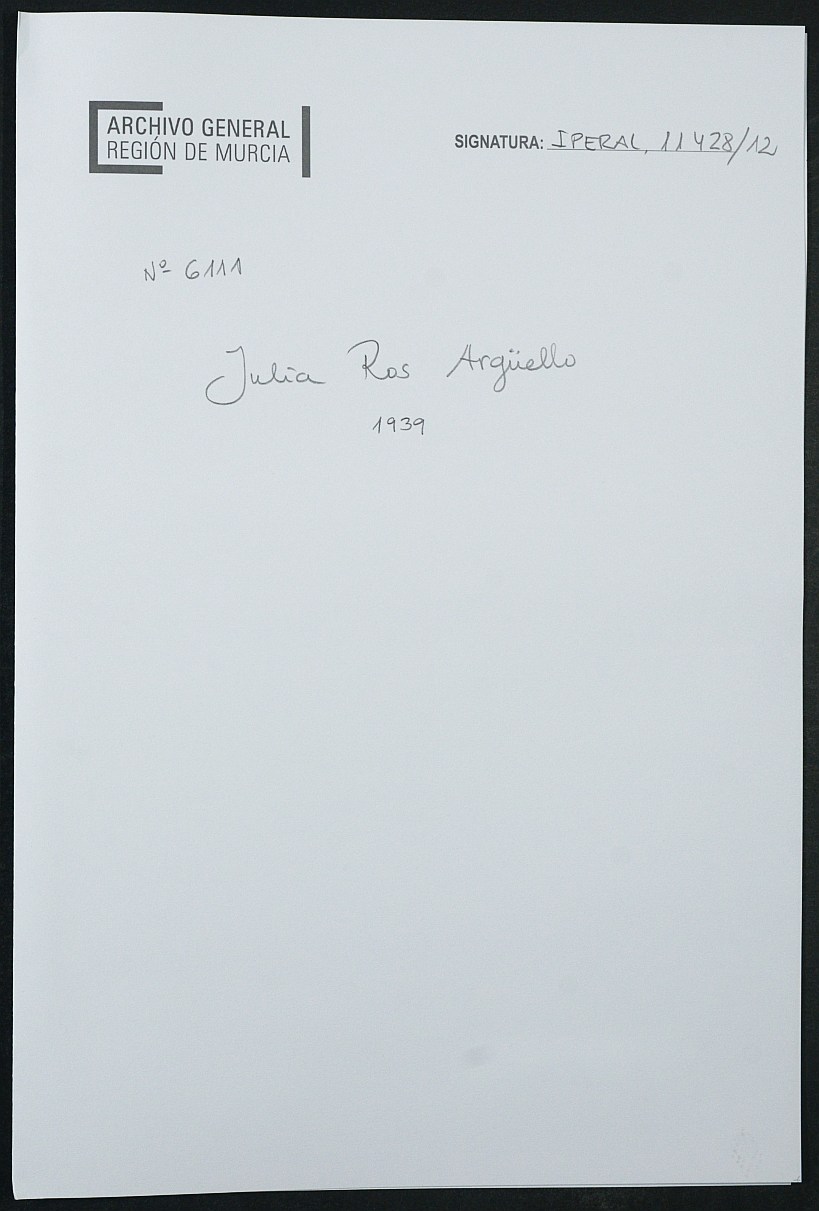 ARCHIVO GENERAL
REGIÓN DE MURCIA
SIGNATURA: IPERAL, 11428/12
Nº 6111
Julia Ros Argüello
1939